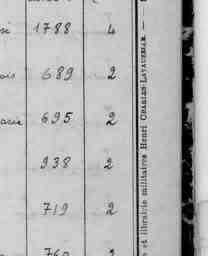 si 1788 4
ois 689 2
arie 695 2
938 2
719 2
760 2
et librairie militaires Henri CHARLES-LAVAUZELLE. —